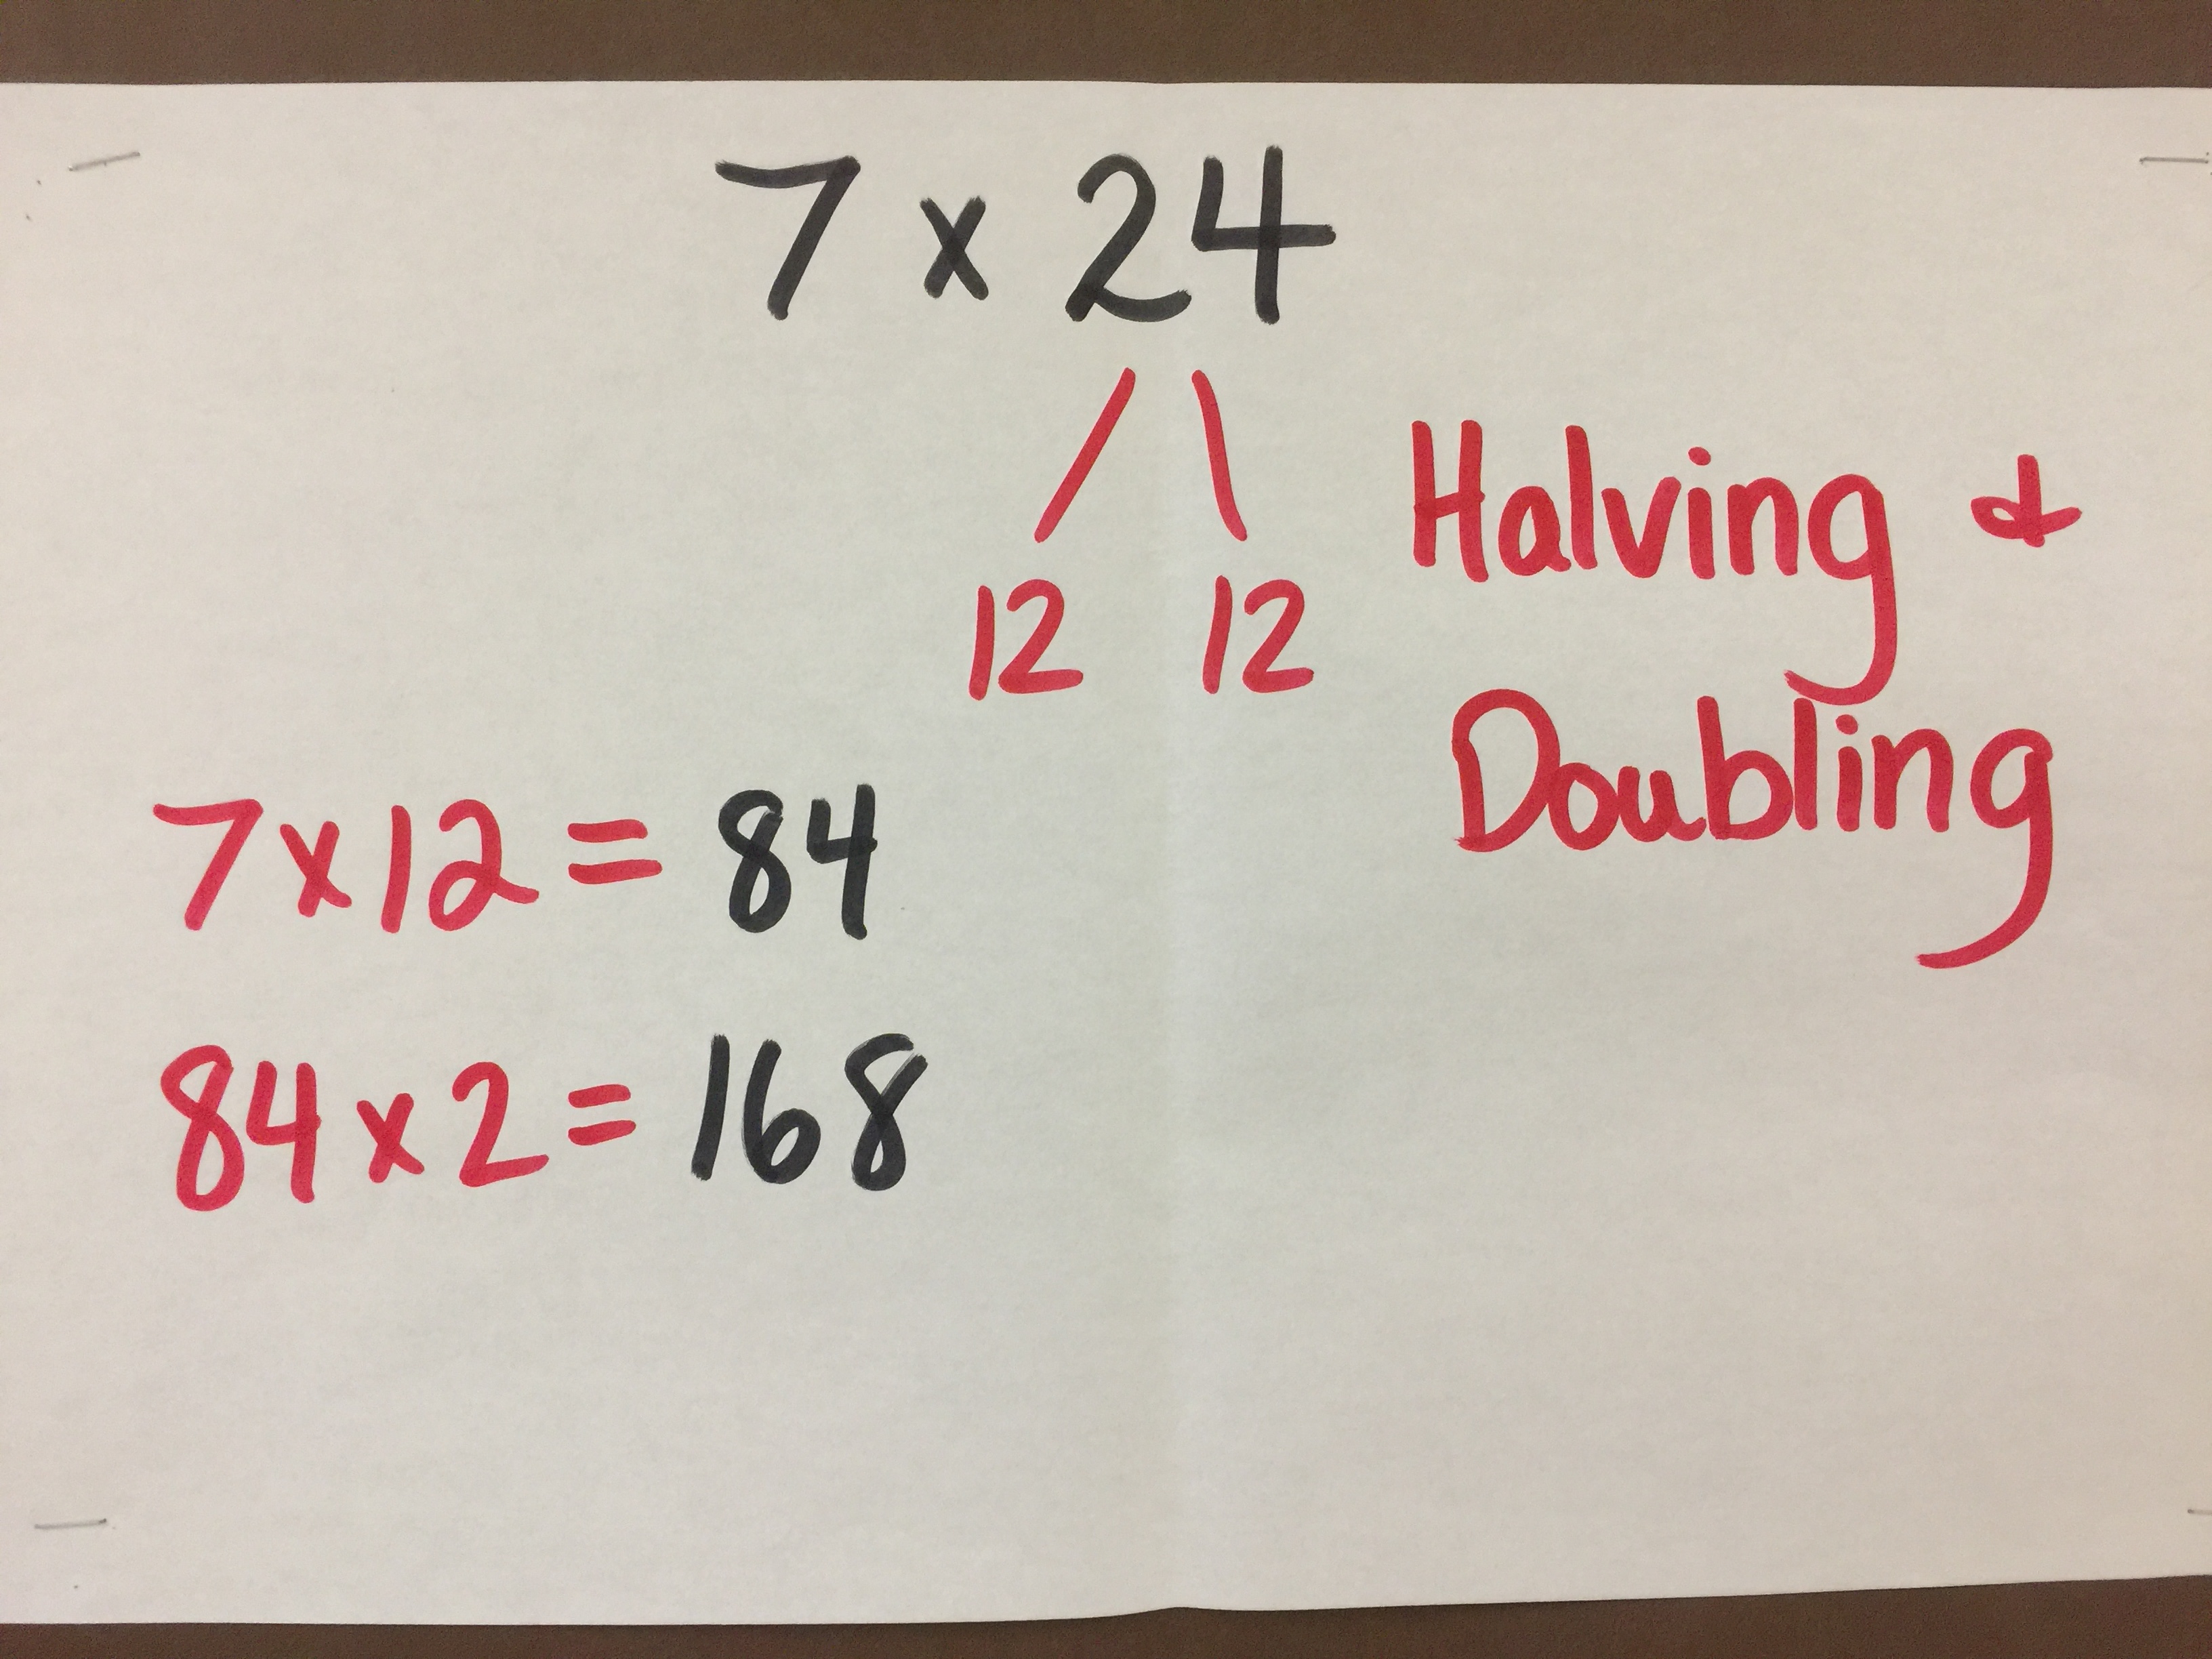 7 x 24
12 12
Halving &
Doubling
7 x 12 = 84
84 x 2 = 168